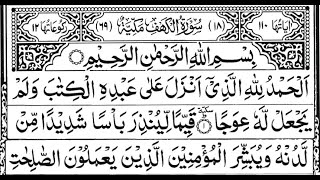 اٰيَاتُهَا ١١٠ (١٨) سُوْرَةُ الْكَهْفِ مَكِّيَّةٌ (٦٩) رُكُوْعَاتُهَا ١٢
بِسْمِ اللّٰهِ الرَّحْمٰنِ الرَّحِيْمِ
اَلْحَمْدُ لِلّٰهِ الَّذِيْٓ اَنْزَلَ عَلٰى عَبْدِهِ الْكِتٰبَ وَلَمْ
يَجْعَلْ لَّهٗ عِوَجًا ۜ قَيِّمًا لِّيُنْذِرَ بَاْسًا شَدِيْدًا مِّنْ
لَّدُنْهُ وَيُبَشِّرَ الْمُؤْمِنِيْنَ الَّذِيْنَ يَعْمَلُوْنَ الصّٰلِحٰتِ